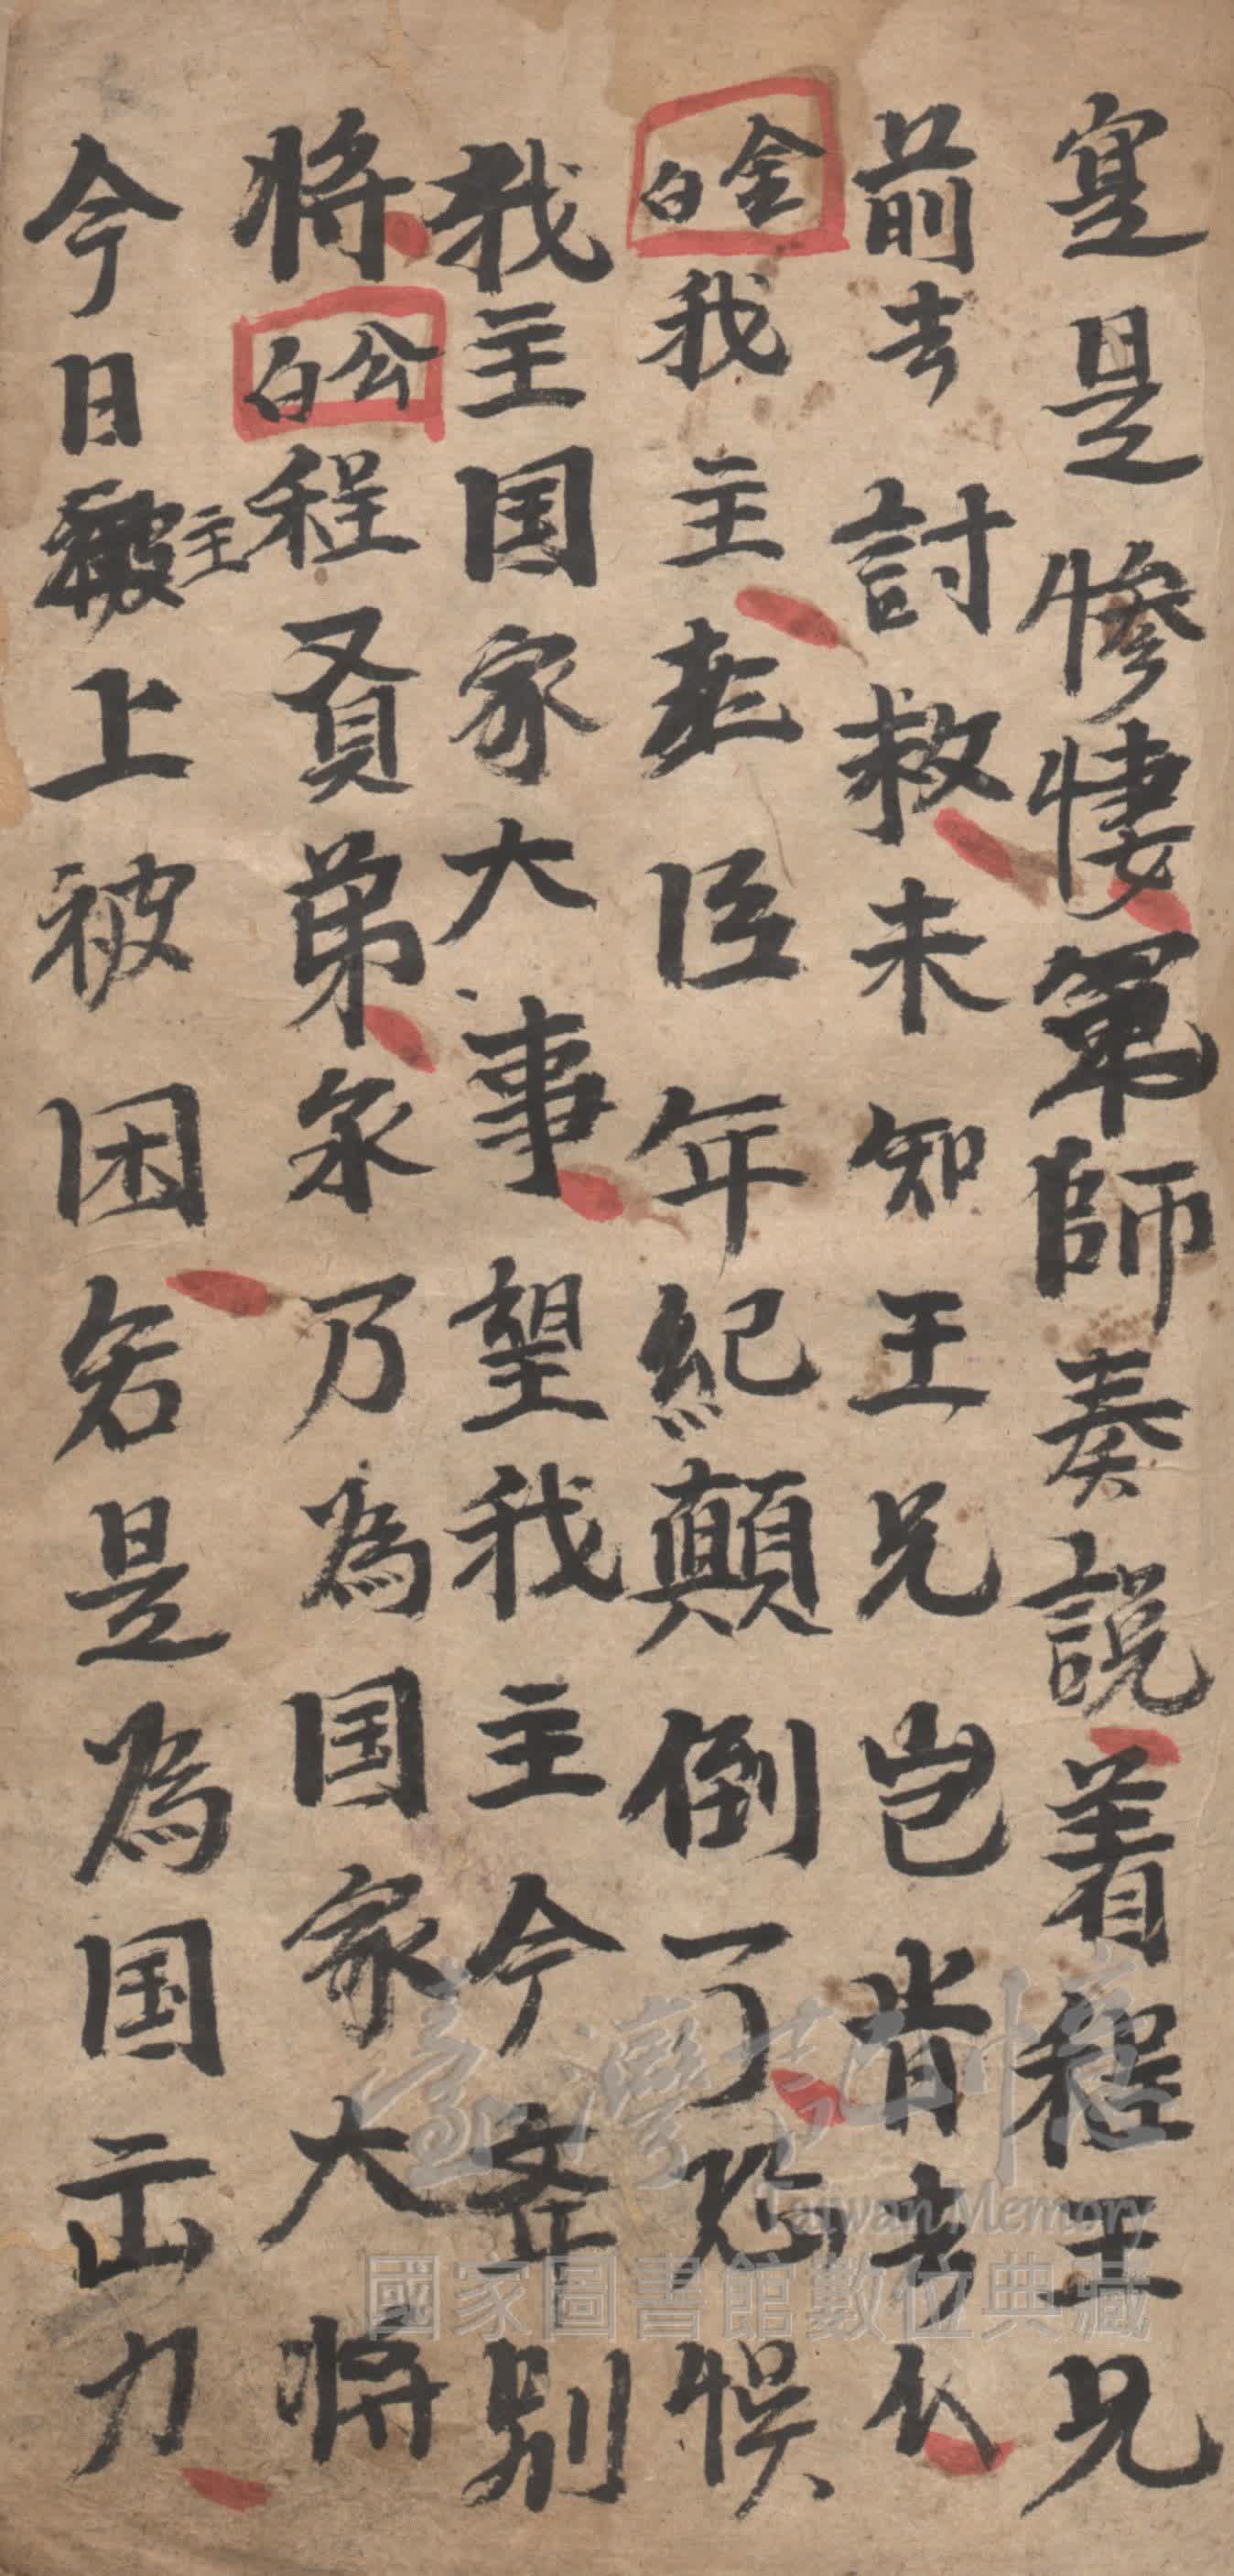 寔是惨悽軍師奏説着程王兄
前去討救未知王兄岂肯去
金白我主老臣年紀顛倒了恐悞
我主国家大事望我主今差别
将公白程贤弟你乃為国家大将
今日主上被困若是為国出力
臺灣記憶
Taiwan Memory
國家圖書館數位典藏